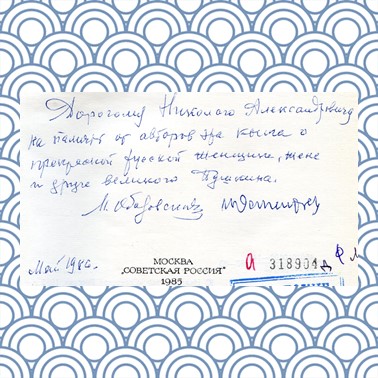 Дорогому Николаю Александровичу
на память от авторов эта книга о
прекрасной русской женщине, жене
и друге великого Пушкина.
М. Ободовская
Май 1986.
МОСКВА
„СОВЕТСКАЯ РОССИЯ"
1985
318904